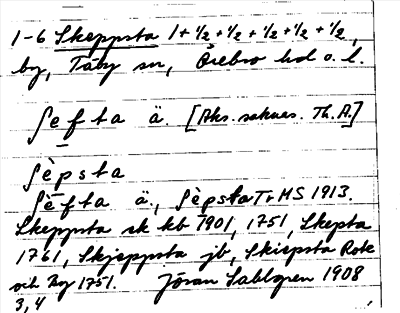 1-6 Skeppsta 1+1/2+1/2+1/2+1/2+1/2,
by, Täby sn, Örebro hd o. l.
ʃefta ä. [Aks. saknas. Th. A.]
ʃèpsta
ʃèfta ä., ʃèpsta Tr MS 1913.
Skeppsta sk kb 1901, 1751, Skepta
1761, Skjeppsta jb, Skiepsta Rote
och Bog 1751. Jöran Sahlgren 1908
3,4